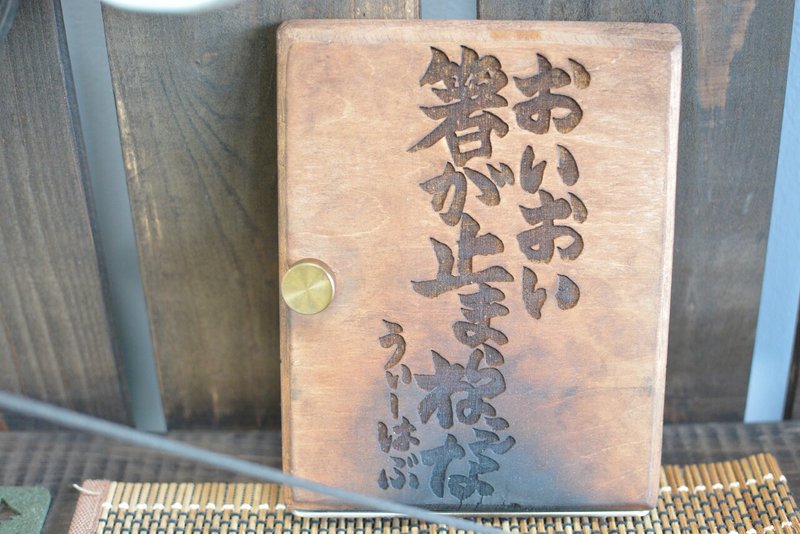 おいおい
箸が止まらねぇな
うぃーはぶ